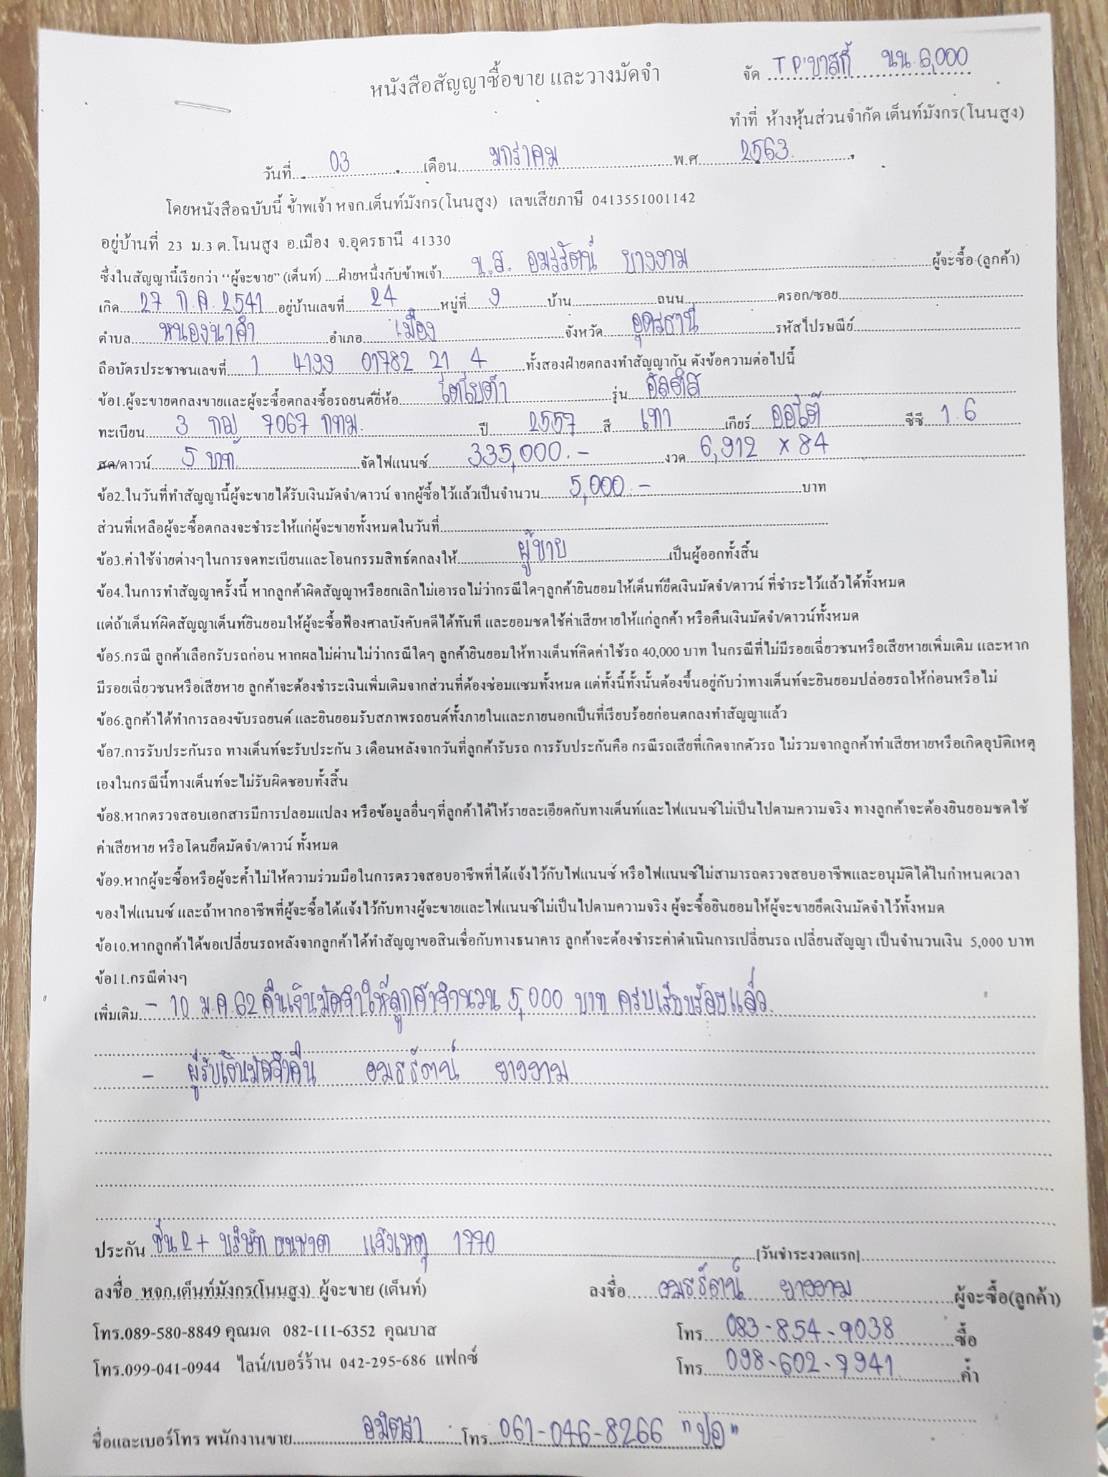 หนังสือสัญญาซื้อขาย และวางมัดจำ
จัด T P บาสกี้ นน. 6,000
ทำที่ ห้างหุ้นส่วนจำกัด เต็นท์มังกร(โนนสูง)
วันที่ 03 เดือน มกราคม พ.ศ. 2563
โดยหนังสือฉบับนี้ ข้าพเจ้า หจก.เต็นท์มังกร(โนนสูง) เลขเสียภาษี 0413551001142
อยู่บ้านที่ 23 ม.3 ต.โนนสูง อ.เมือง จ.อุดรธานี 41330
ซึ่งในสัญญานี้เรียกว่า "ผู้จะขาย" (เต็นท์) ....ฝ่ายหนึ่งกับข้าพเจ้า น.ส. อมรรัตน์ ยางงาม ผู้จะซื้อ (ลูกค้า)
เกิด 27 ก.ค. 2541 อยู่บ้านเลขที่ 24 หมู่ที่ 9 บ้าน ถนน ตรอก/ซอย
ตำบล หนองนาคำ อำเภอ เมือง จังหวัด อุดรธานี รหัสไปรษณีย์
ถือบัตรประชาชนเลขที่ 1 4199 01782 21 4 ทั้งสองฝ่ายตกลงทำสัญญากัน ดังข้อความต่อไปนี้
ข้อ1.ผู้จะขายตกลงขายและผู้จะซื้อตกลงซื้อรถยนต์ยี่ห้อ โตโยต้า รุ่น อัลติส
ทะเบียน 3 กญ 7067 กทม. ปี 2557 สี เทา เกียร์ ออโต้ ซีซี 1.6
สด/ดาวน์ 5 บาท จัดไฟแนนซ์ 335,000.- งวด 6,912 x 84
ข้อ2.ในวันที่ทำสัญญานี้ผู้จะขายได้รับเงินมัดจำ/ดาวน์ จากผู้ซื้อไว้แล้วเป็นจำนวน 5,000.- บาท
ส่วนที่เหลือผู้จะซื้อตกลงจะชำระให้แก่ผู้จะขายทั้งหมดในวันที่
ข้อ3.ค่าใช้จ่ายต่างๆในการจดทะเบียนและโอนกรรมสิทธ์ตกลงให้ ผู้ขาย เป็นผู้ออกทั้งสิ้น
ข้อ4.ในการทำสัญญาครั้งนี้ หากลูกค้าผิดสัญญาหรือยกเลิกไม่เอารถไม่ว่ากรณีใดๆลูกค้ายินยอมให้เต็นท์ยึดเงินมัดจำ/ดาวน์ ที่ชำระไว้แล้วได้ทั้งหมด
แต่ถ้าเต็นท์ผิดสัญญาเต็นท์ยินยอมให้ผู้จะซื้อฟ้องศาลบังคับคดีได้ทันที และยอมชดใช้ค่าเสียหายให้แก่ลูกค้า หรือคืนเงินมัดจำ/ดาวน์ทั้งหมด
ข้อ5.กรณี ลูกค้าเลือกรับรถก่อน หากผลไม่ผ่านไม่ว่ากรณีใดๆ ลูกค้ายินยอมให้ทางเต็นท์คิดค่าใช้รถ 40,000 บาท ในกรณีที่ไม่มีรอยเฉี่ยวชนหรือเสียหายเพิ่มเติม และหาก
มีรอยเฉี่ยวชนหรือเสียหาย ลูกค้าจะต้องชำระเงินเพิ่มเติมจากส่วนที่ต้องซ่อมแซมทั้งหมด แต่ทั้งนี้ทั้งนั้นต้องขึ้นอยู่กับว่าทางเต็นท์จะยินยอมปล่อยรถให้ก่อนหรือไม่
ข้อ6.ลูกค้าได้ทำการลองขับรถยนต์ และยินยอมรับสภาพรถยนต์ทั้งภายในและภายนอกเป็นที่เรียบร้อยก่อนตกลงทำสัญญาแล้ว
ข้อ7.การรับประกันรถ ทางเต็นท์จะรับประกัน 3 เดือนหลังจากวันที่ลูกค้ารับรถ การรับประกันคือ กรณีรถเสียที่เกิดจากตัวรถ ไม่รวมจากลูกค้าทำเสียหายหรือเกิดอุบัติเหตุ
เองในกรณีนี้ทางเต็นท์จะไม่รับผิดชอบทั้งสิ้น
ข้อ8.หากตรวจสอบเอกสารมีการปลอมแปลง หรือข้อมูลอื่นๆที่ลูกค้าได้ให้รายละเอียดกับทางเต็นท์และไฟแนนซ์ไม่เป็นไปตามความจริง ทางลูกค้าจะต้องยินยอมชดใช้
ค่าเสียหาย หรือโดนยึดมัดจำ/ดาวน์ ทั้งหมด
ข้อ9.หากผู้จะซื้อหรือผู้จะค้ำไม่ให้ความร่วมมือในการตรวจสอบอาชีพที่ได้แจ้งไว้กับไฟแนนซ์ หรือไฟแนนซ์ไม่สามารถตรวจสอบอาชีพและอนุมัติได้ในกำหนดเวลา
ของไฟแนนซ์ และถ้าหากอาชีพที่ผู้จะซื้อได้แจ้งไว้กับทางผู้จะขายและไฟแนนซ์ไม่เป็นไปตามความจริง ผู้จะซื้อยินยอมให้ผู้จะขายยึดเงินมัดจำไว้ทั้งหมด
ข้อ10.หากลูกค้าได้ขอเปลี่ยนรถหลังจากลูกค้าได้ทำสัญญาขอสินเชื่อกับทางธนาคาร ลูกค้าจะต้องชำระค่าดำเนินการเปลี่ยนรถ เปลี่ยนสัญญา เป็นจำนวนเงิน 5,000 บาท
ข้อ11.กรณีต่างๆ
เพิ่มเติม - 10 ม.ค.62 คืนเงินมัดจำให้ลูกค้าจำนวน 5,000 บาท ครบเรียบร้อยแล้ว.
- ผู้รับเงินมัดจำคืน อมรรัตน์ ยางงาม
ประกัน ชั้น 2+ บริษัท ธนชาต แจ้งเหตุ 1770 [วันชำระงวดแรก]
ลงชื่อ หจก.เต็นท์มังกร(โนนสูง) ผู้จะขาย (เต็นท์) ลงชื่อ อมรรัตน์ ยางงาม ผู้จะซื้อ(ลูกค้า)
โทร.089-580-8849 คุณมด 082-111-6352 คุณบาส โทร 083-854-9038 ซื้อ
โทร.099-041-0944 ไลน์/เบอร์ร้าน 042-295-686 แฟกซ์ โทร 098-602-7941 ค้ำ
ชื่อและเบอร์โทร พนักงานขาย อมิตรา โทร 061-046-8266 "ปอ"